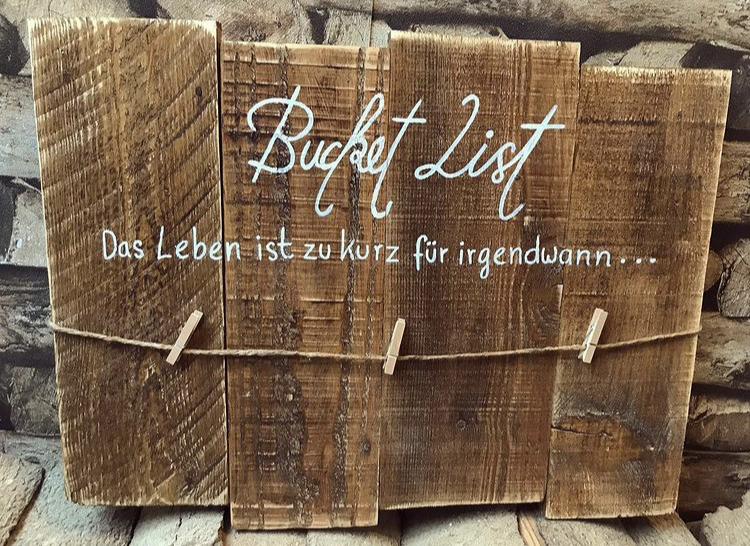 Bucket List
Das Leben ist zu kurz für irgendwann...